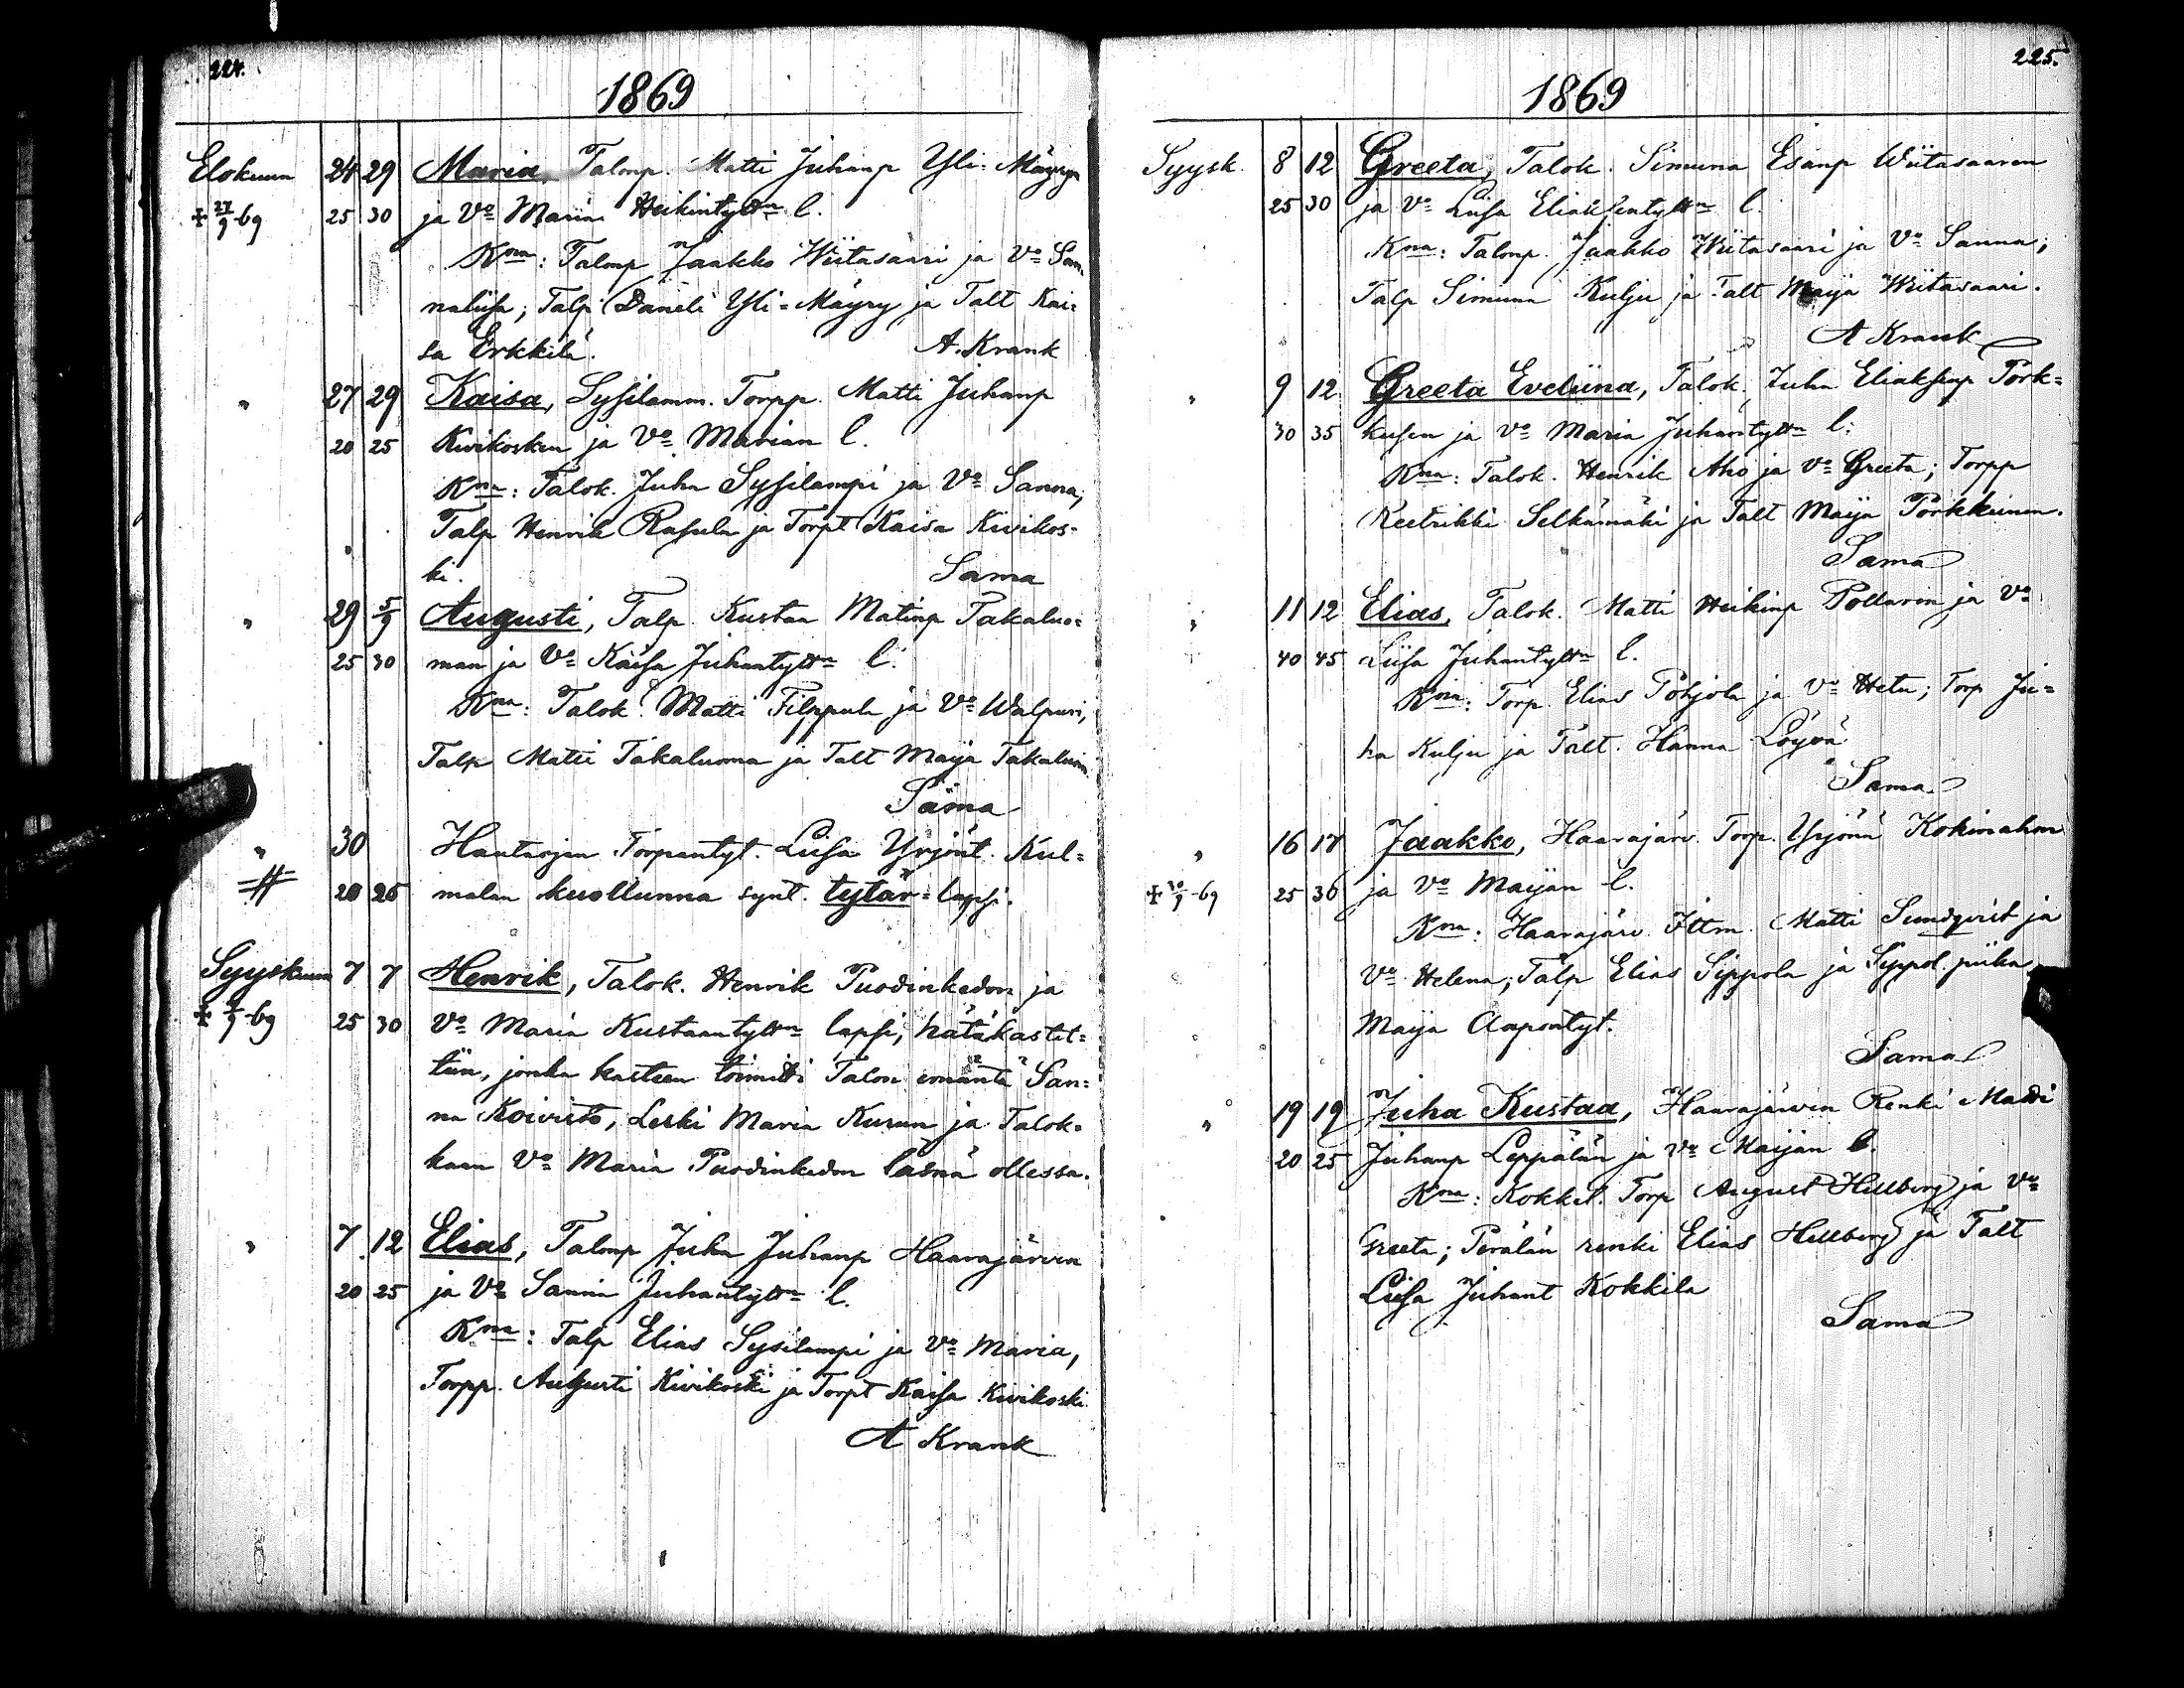 224.
1869
Elokuun 24 29 Maria, Talonp. Matti Juhanp Yli-Mäyryn
+ 27/9-69 25 30 ja Vo Maria Heikintyttn l.
Kna: Talonp Jaakko Wiitasaari ja Vo San-
naliisa; Talp Daneli Yli=Mäyry ja Talt Kai=
sa Erkkilä. A. Krank
" 27 29 Kaisa, Sysilamm. Torpp. Matti Juhanp
20 25 Kivikosken ja Vo Marian l.
Kna: Talok. Juha Sysilampi ja Vo Sanna,
Talp Henrik Rasula ja Torpt Kaisa Kivikos-
ki. Sama
" 29 5/9 Augusti, Talp. Kustaa Matinp Takaluo=
25 30 man ja Vo Kaisa Juhantyttn l.
Kna: Talok. Matti Filppula ja Vo Walpuri,
Talp Matti Takaluoma ja Talt Maija Takaluoma
Sama
" 30 Hautaojan Torpantyt. Liisa Yrjönt. Kul=
20 25 malan kuollunna synt. tytär=lapsi.
Syyskuun 7 7 Henrik, Talok. Henrik Puodinkedon ja
+ 9/9-69 25 30 Vo Maria Kustaantyttn lapsi, hätäkastet=
tiin, jonka kasteen toimitti Talon emäntä San=
na Koivisto, Leski Maria Kurun ja Talok=
kaan Vo Maria Puodinkedon läsnä ollessa.
" 7 12 Elias, Talonp Juha Juhanp Haarajärven
20 25 ja Vo Sanna Juhantyttn l.
Kna: Talp Elias Sysilampi ja Vo Maria,
Torpp. Augusti Kivikoski ja Torpt Kaisa Kivikoski.
A Krank
225.
1869
Syysk. 8 12 Greeta, Talok. Simuna Esanp Wiitasaaren
25 30 ja Vo Liisa Eliaksentyttn l.
Kna: Talonp. Jaakko Wiitasaari ja Vo Sanna;
Talp Simuna Kulju ja Talt Maija Wiitasaari.
A Krank
" 9 12 Greeta Eveliina, Talok. Juha Eliaksenp Pork=
30 35 kusen ja Vo Maria Juhantyttn l:
Kna: Talok. Henrik Aho ja Vo Greeta; Torpp
Reetrikki Selkämäki ja Talt Maija Porkkuinen.
Sama
" 11 12 Elias, Talok. Matti Heikinp Pollarin ja Vo
40 45 Liisa Juhantyttn l.
Kna: Torp. Elias Pohjola ja Vo Hetu; Torp Ju=
ha Kulju ja Talt. Hanna Löyvä
Sama
" 16 17 Jaakko, Haarajärv. Torp. Yrjönä Kokinahon
+ 30/9-69 25 30 ja Vo Maijan l.
Kna: Haarajärv. Ittm. Matti Sundqvist ja
Vo Helena; Talp Elias Sippola ja Sippol. piika
Maija Aapontyt.
Sama
" 19 19 Juha Kustaa, Haarajärven Renki Matti
20 25 Juhanp Leppälän ja Vo Maijan l.
Kna: Kokkil. Torp August Hellberg ja Vo
Greeta; Perälän renki Elias Hellberg ja Talt
Liisa Juhant Kokkila
Sama